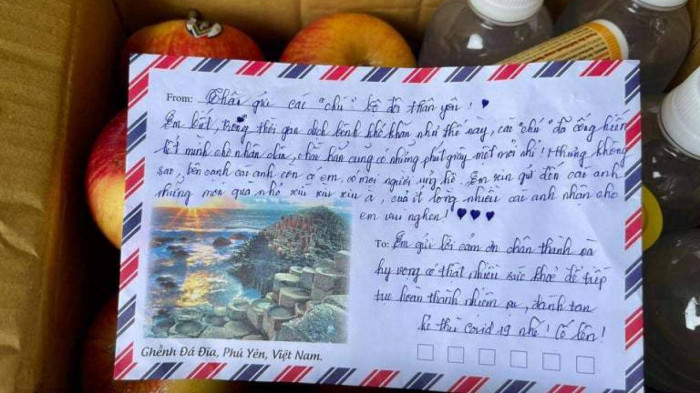 From: Thân gửi các "chú" bộ đội thân yêu! ♥
Em biết, trong thời gian dịch bệnh khó khăn như thế này, các "chú" đã cống hiến
hết mình cho nhân dân, chắc hẳn cũng có những phút giây mệt mỏi nhỉ! Nhưng không
sao, bên cạnh các anh còn có em, có mọi người ủng hộ. Em xin gửi đến các anh
những món quà nhỏ xíu xiu xiu à, của ít lòng nhiều các anh nhận cho
em vui nghen! ♥♥♥
To: Em gửi lời cảm ơn chân thành và
hy vọng có thật nhiều sức khoẻ để tiếp
tục hoàn thành nhiệm vụ, đánh tan
kẻ thù covid 19 nhé! Cố lên!
Ghềnh Đá Đĩa, Phú Yên, Việt Nam.